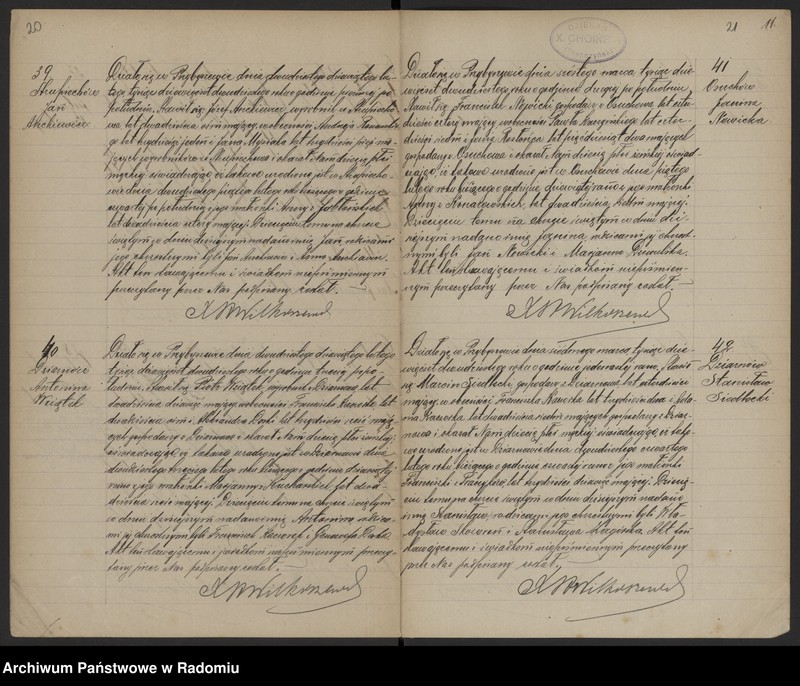 20
39
Jan
Działo się w Przybyszewie dnia dwudziestego dziewiątego lu-
tego tysiąc dziewięćset dwudziestego roku o godzinie
po południu. Stawił się Józef wyrobnik
lat dwadzieścia ośm mający, w obecności
lat trzydzieści jeden i Jana lat trzydzieści pięć ma-
jących i okazał Nam dziecię płci
męzkiej oświadczając, iż takowe urodzone jest w
dnia dwudziestego piątego lutego roku bieżącego o godzinie
czwartej po południu z jego małżonki Anny z
lat dwadzieścia cztery mającej. Dziecięciu temu na chrzcie
świętym w dniu dzisiejszym nadano imię Jan, a rodzicami
jego chrzestnymi byli Jan i Anna
Akt ten stawającemu i świadkom niepiśmiennym
przeczytany przez Nas podpisany został.
X Wilkoszewski
40
Dziarnów
Antonina
Kciążek
Działo się w Przybyszewie dnia dwudziestego dziewiątego lutego
tysiąc dziewięćset dwudziestego roku o godzinie trzeciej popo-
łudniu. Stawił się Piotr wyrobnik z Dziarnowa lat
dwadzieścia dziewięć mający, w obecności Franciszka lat
dwadzieścia ośm i Aleksandra lat trzydzieści sześć mają-
cych gospodarzy z Dziarnowa i okazał Nam dziecię płci żeńskiej
oświadczając, iż takowe urodzone jest w Dziarnowie dnia
dwudziestego trzeciego lutego roku bieżącego o godzinie
z jego małżonki Marjanny z lat dwa-
dzieścia sześć mającej. Dziecięciu temu na chrzcie świętym
w dniu dzisiejszym nadano imię Antonina, a rodzica-
mi jej chrzestnymi byli i
Akt ten stawającemu i świadkom niepiśmiennym przeczy-
tany przez Nas podpisany został.
X Wilkoszewski
21
11
X. CHOINS
41
Osuchów
Janina
Nowicka
Działo się w Przybyszewie dnia szóstego marca tysiąc dzie-
więćset dwudziestego roku o godzinie drugiej po południu.
Stawił się Franciszek Nowicki gospodarz z Osuchowa lat czter-
dzieści cztery mający, w obecności Pawła lat czter-
dzieści siedm i Józefa lat pięćdziesiąt dwa mających
gospodarzy z Osuchowa i okazał Nam dziecię płci żeńskiej oświad-
czając, iż takowe urodzone jest w Osuchowie dnia piątego
lutego roku bieżącego o godzinie dziewiątej rano z jego małżonki
lat dwadzieścia siedm mającej.
Dziecięciu temu na chrzcie świętym w dniu dzi-
siejszym nadano imię Janina, a rodzicami jej chrzest-
nymi byli Jan Nowicki i Marjanna
Akt ten stawającemu i świadkom niepiśmien-
nym przeczytany przez Nas podpisany został.
X Wilkoszewski
42
Dziarnów
Stanisław
Siedlecki
Działo się w Przybyszewie dnia siódmego marca tysiąc dzie-
więćset dwudziestego roku o godzinie jedenastej rano. Stawił
się Marcin Siedlecki, gospodarz z Dziarnowa lat czterdzieści
mający, w obecności Franciszka lat trzydzieści dwa i
lat dwadzieścia siedm mających gospodarzy z Dziar-
nowa i okazał Nam dziecię płci męzkiej oświadczając, iż tako-
we urodzone jest w Dziarnowie dnia dwudziestego czwartego
lutego roku bieżącego o godzinie czwartej rano z jego małżonki
Franciszki z lat trzydzieści dziewięć mającej. Dziecię-
ciu temu na chrzcie świętym w dniu dzisiejszym nadano
imię Stanisław, a rodzicami jego chrzestnymi byli Wła-
dysław Skoworon i Akt ten
stawającemu i świadkom niepiśmiennym przeczytany
przez Nas podpisany został.
X Wilkoszewski
Archiwum Państwowe w Radomiu